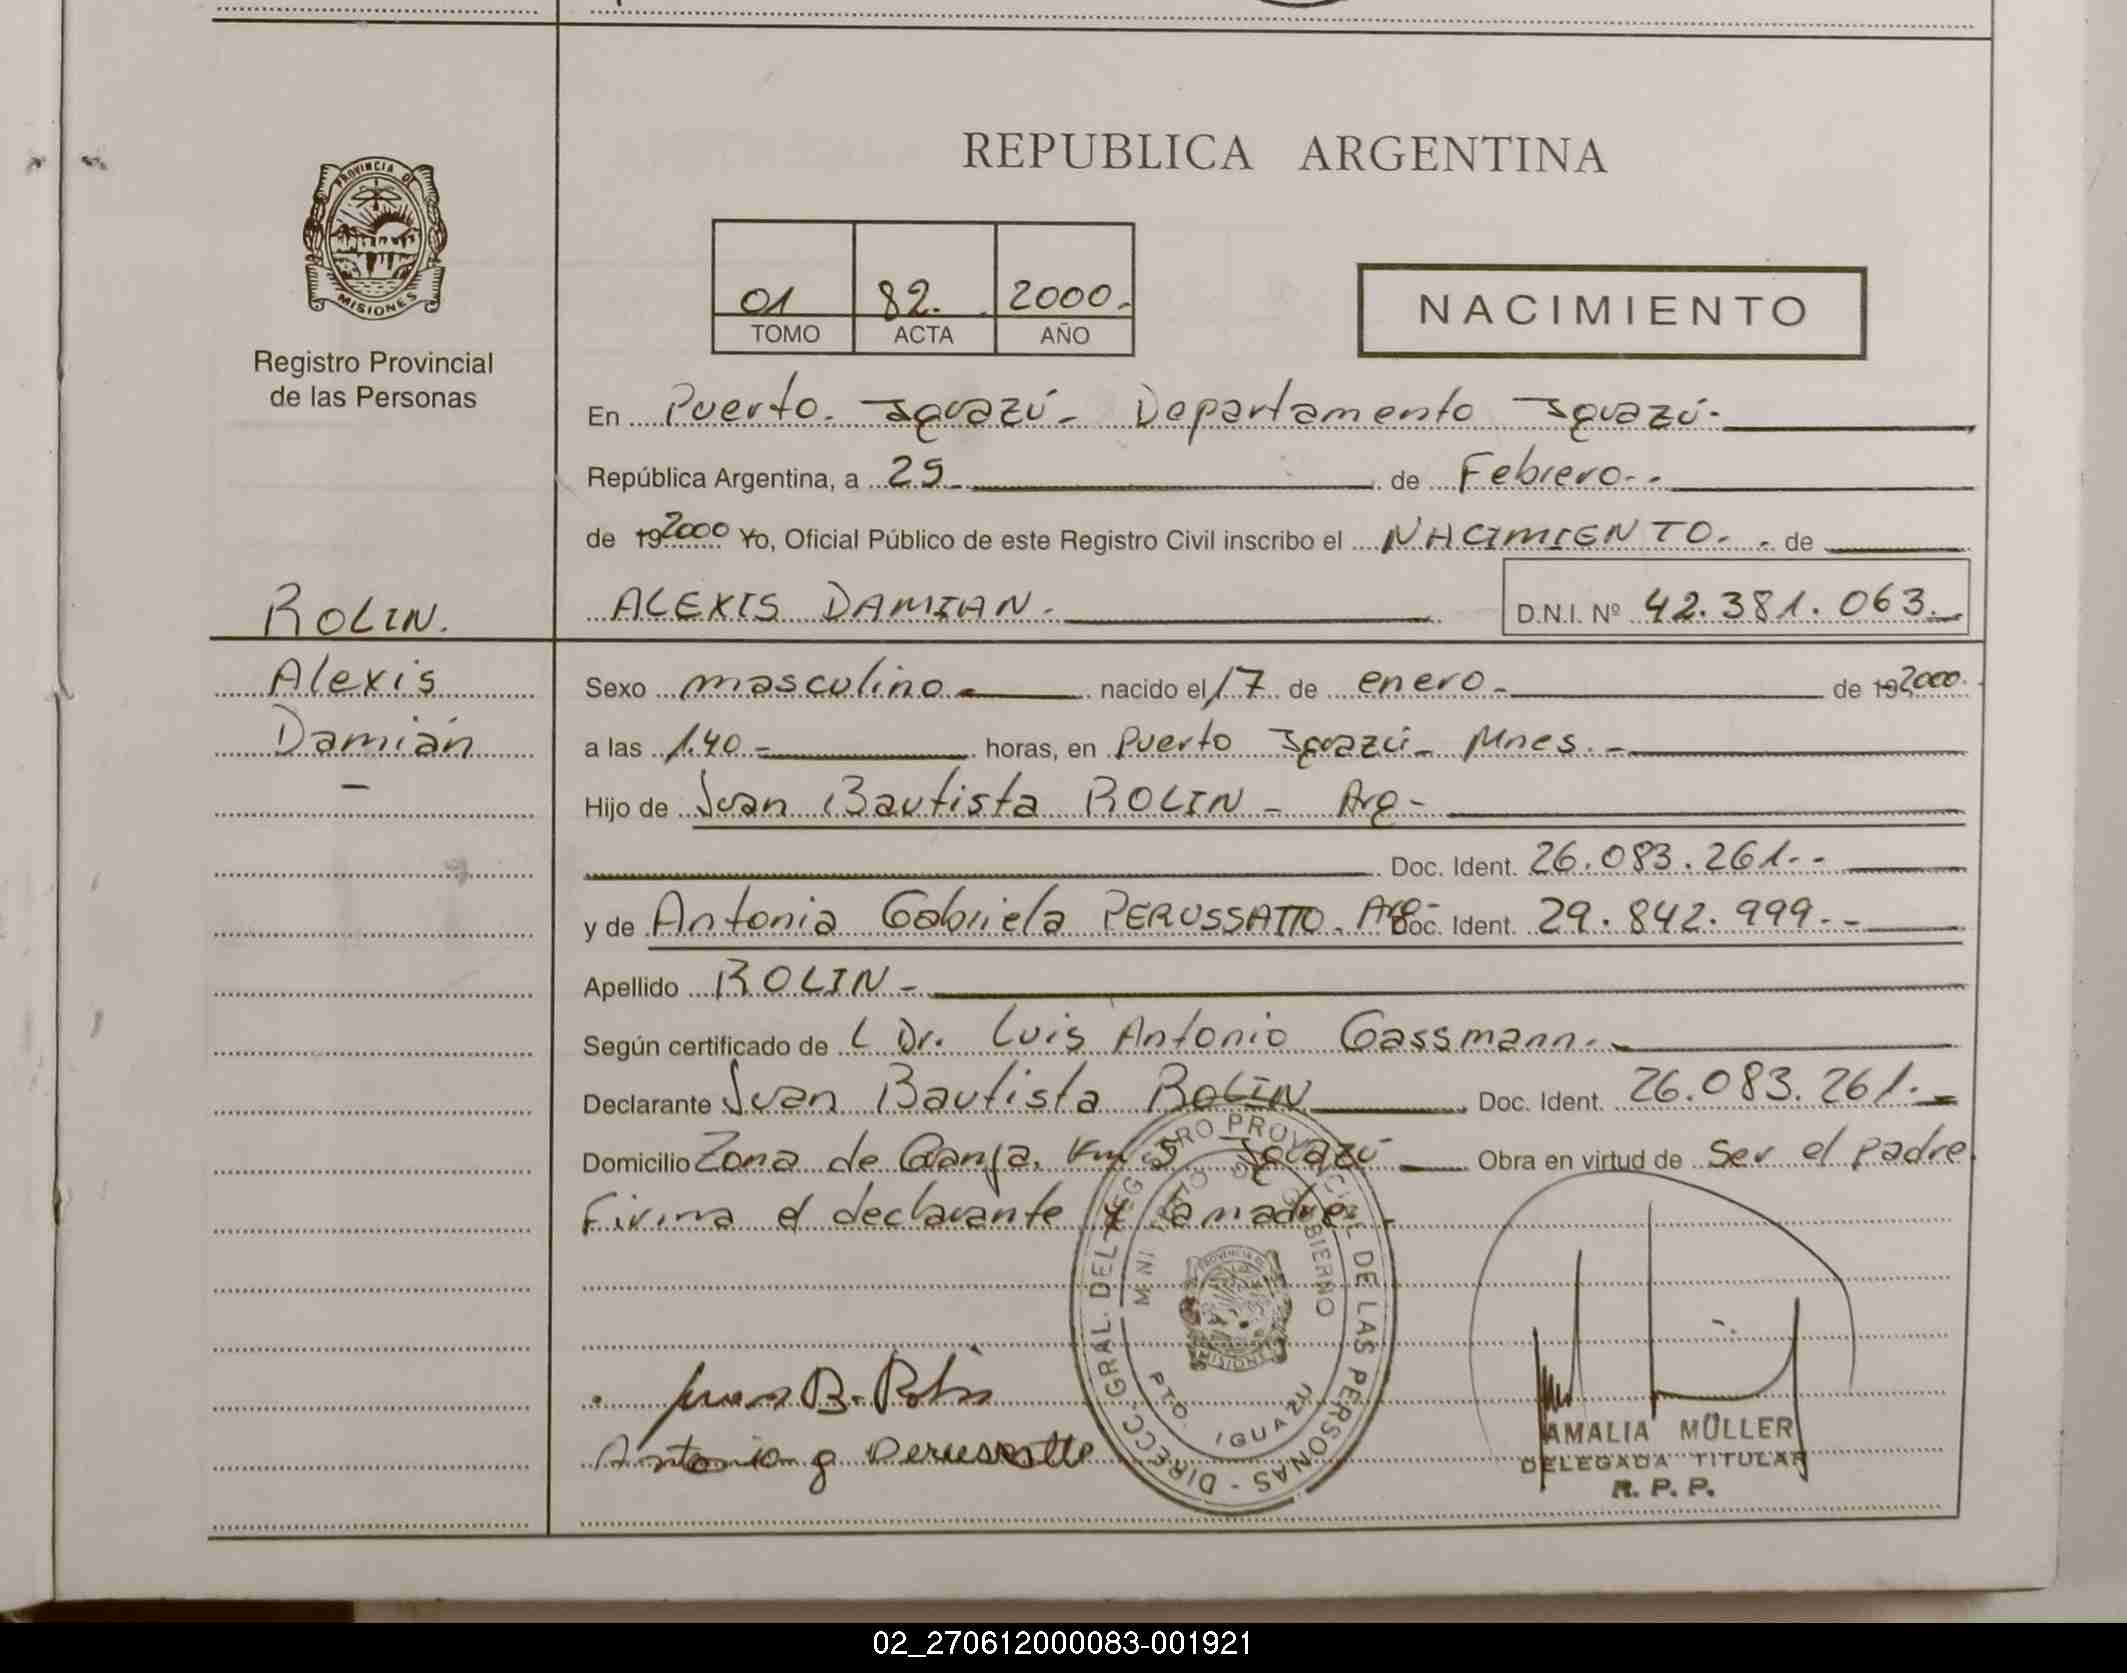 REPUBLICA ARGENTINA
PROVINCIA DE
MISIONES
Registro Provincial
de las Personas
01 82. 2000.-
TOMO ACTA AÑO
NACIMIENTO
En Puerto. Iguazú- Departamento Iguazú-
República Argentina, a 29 de Febrero.-
de 192000 Yo, Oficial Público de este Registro Civil inscribo el NACIMIENTO. - de
ROLIN. ALEXIS DAMIAN. D.N.I. Nº 42.381.063.-
Alexis Sexo masculino - nacido el 17 de enero - de 192000
Damián a las 1.40 - horas, en Puerto Iguazú- Mnes. -
- Hijo de Juan Bautista ROLIN - Arg -
Doc. Ident. 26.083.261.-
y de Antonia Gabriela PERUSSATTO. Arg- Doc. Ident. 29.842.999.-
Apellido ROLIN -
Según certificado de L Dr. Luis Antonio Gassmann. -
Declarante Juan Bautista ROLIN Doc. Ident. 26.083.261.-
Domicilio Zona de Granja. Km 5 Iguazú Obra en virtud de Ser el padre
Firma el declarante y la madre. -
DIRECC. GRAL. DEL REGISTRO PROVINCIAL DE LAS PERSONAS -
GOBIERNO
PTO. IGUAZU
PROVINCIA DE
MISIONES
Juan B. Rolin
Antonia g Perussatto
AMALIA MÜLLER
DELEGADA TITULAR
R. P. P.
02_270612000083-001921